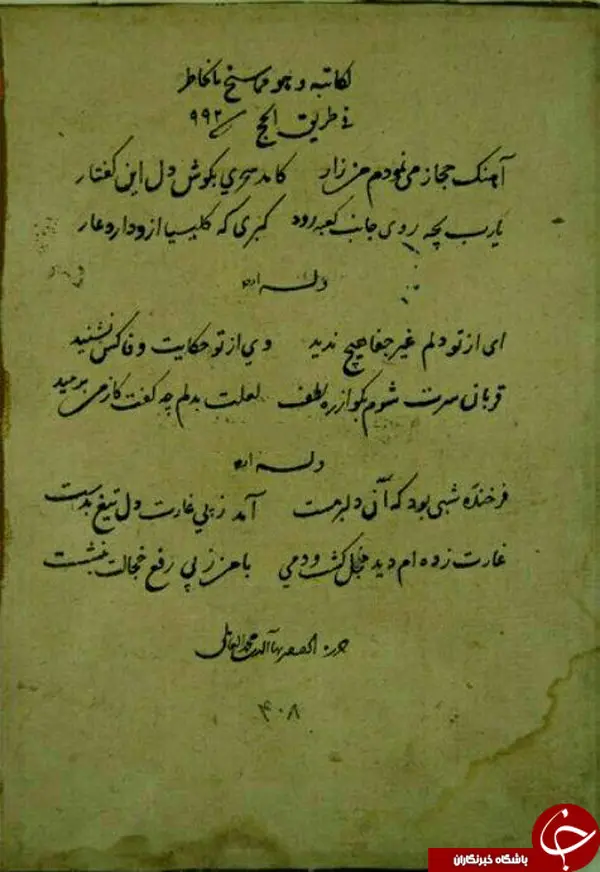 لكاتبه و هو مما سنح بالخاطر
فی طریق الحج ۹۹۲
آهنک حجاز می نمودم من زار کامد سحری بکوش دل این کفتار
یارب بچه روی جانب کعبه رود کبری که کلیسیا ازو دارد عار
وله ایضا
ای از تو دلم غیر جفا هیچ ندید وی از تو حکایت وفا کس نشنید
قربان سرت شوم بکو از ره لطف لعلت بدلم چه کفت کز من برمید
وله ایضا
فرخنده شبی بود که آن دلبر مست آمد ز پی غارت دل تیغ بدست
غارت زده ام دید خجل کشت و دمی با من ز پی رفع خجالت بنشست
بهاء الدین محمد العاملی
۴۰۸
باشگاه خبرنگاران